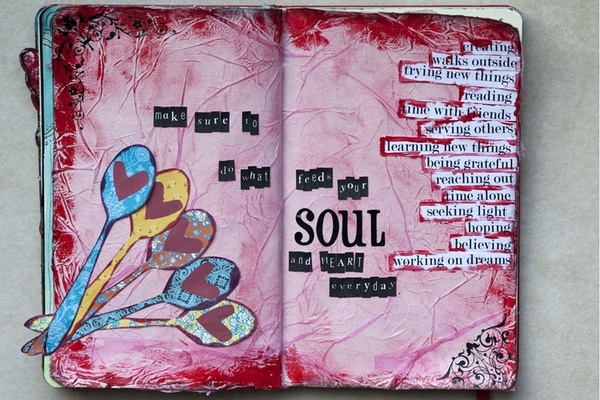 make sure to
do what feeds your
SOUL
and HEART
everyday
creating
walks outside
trying new things
reading
time with friends
serving others
learning new things
being grateful
reaching out
time alone
seeking light
hoping
believing
working on dreams